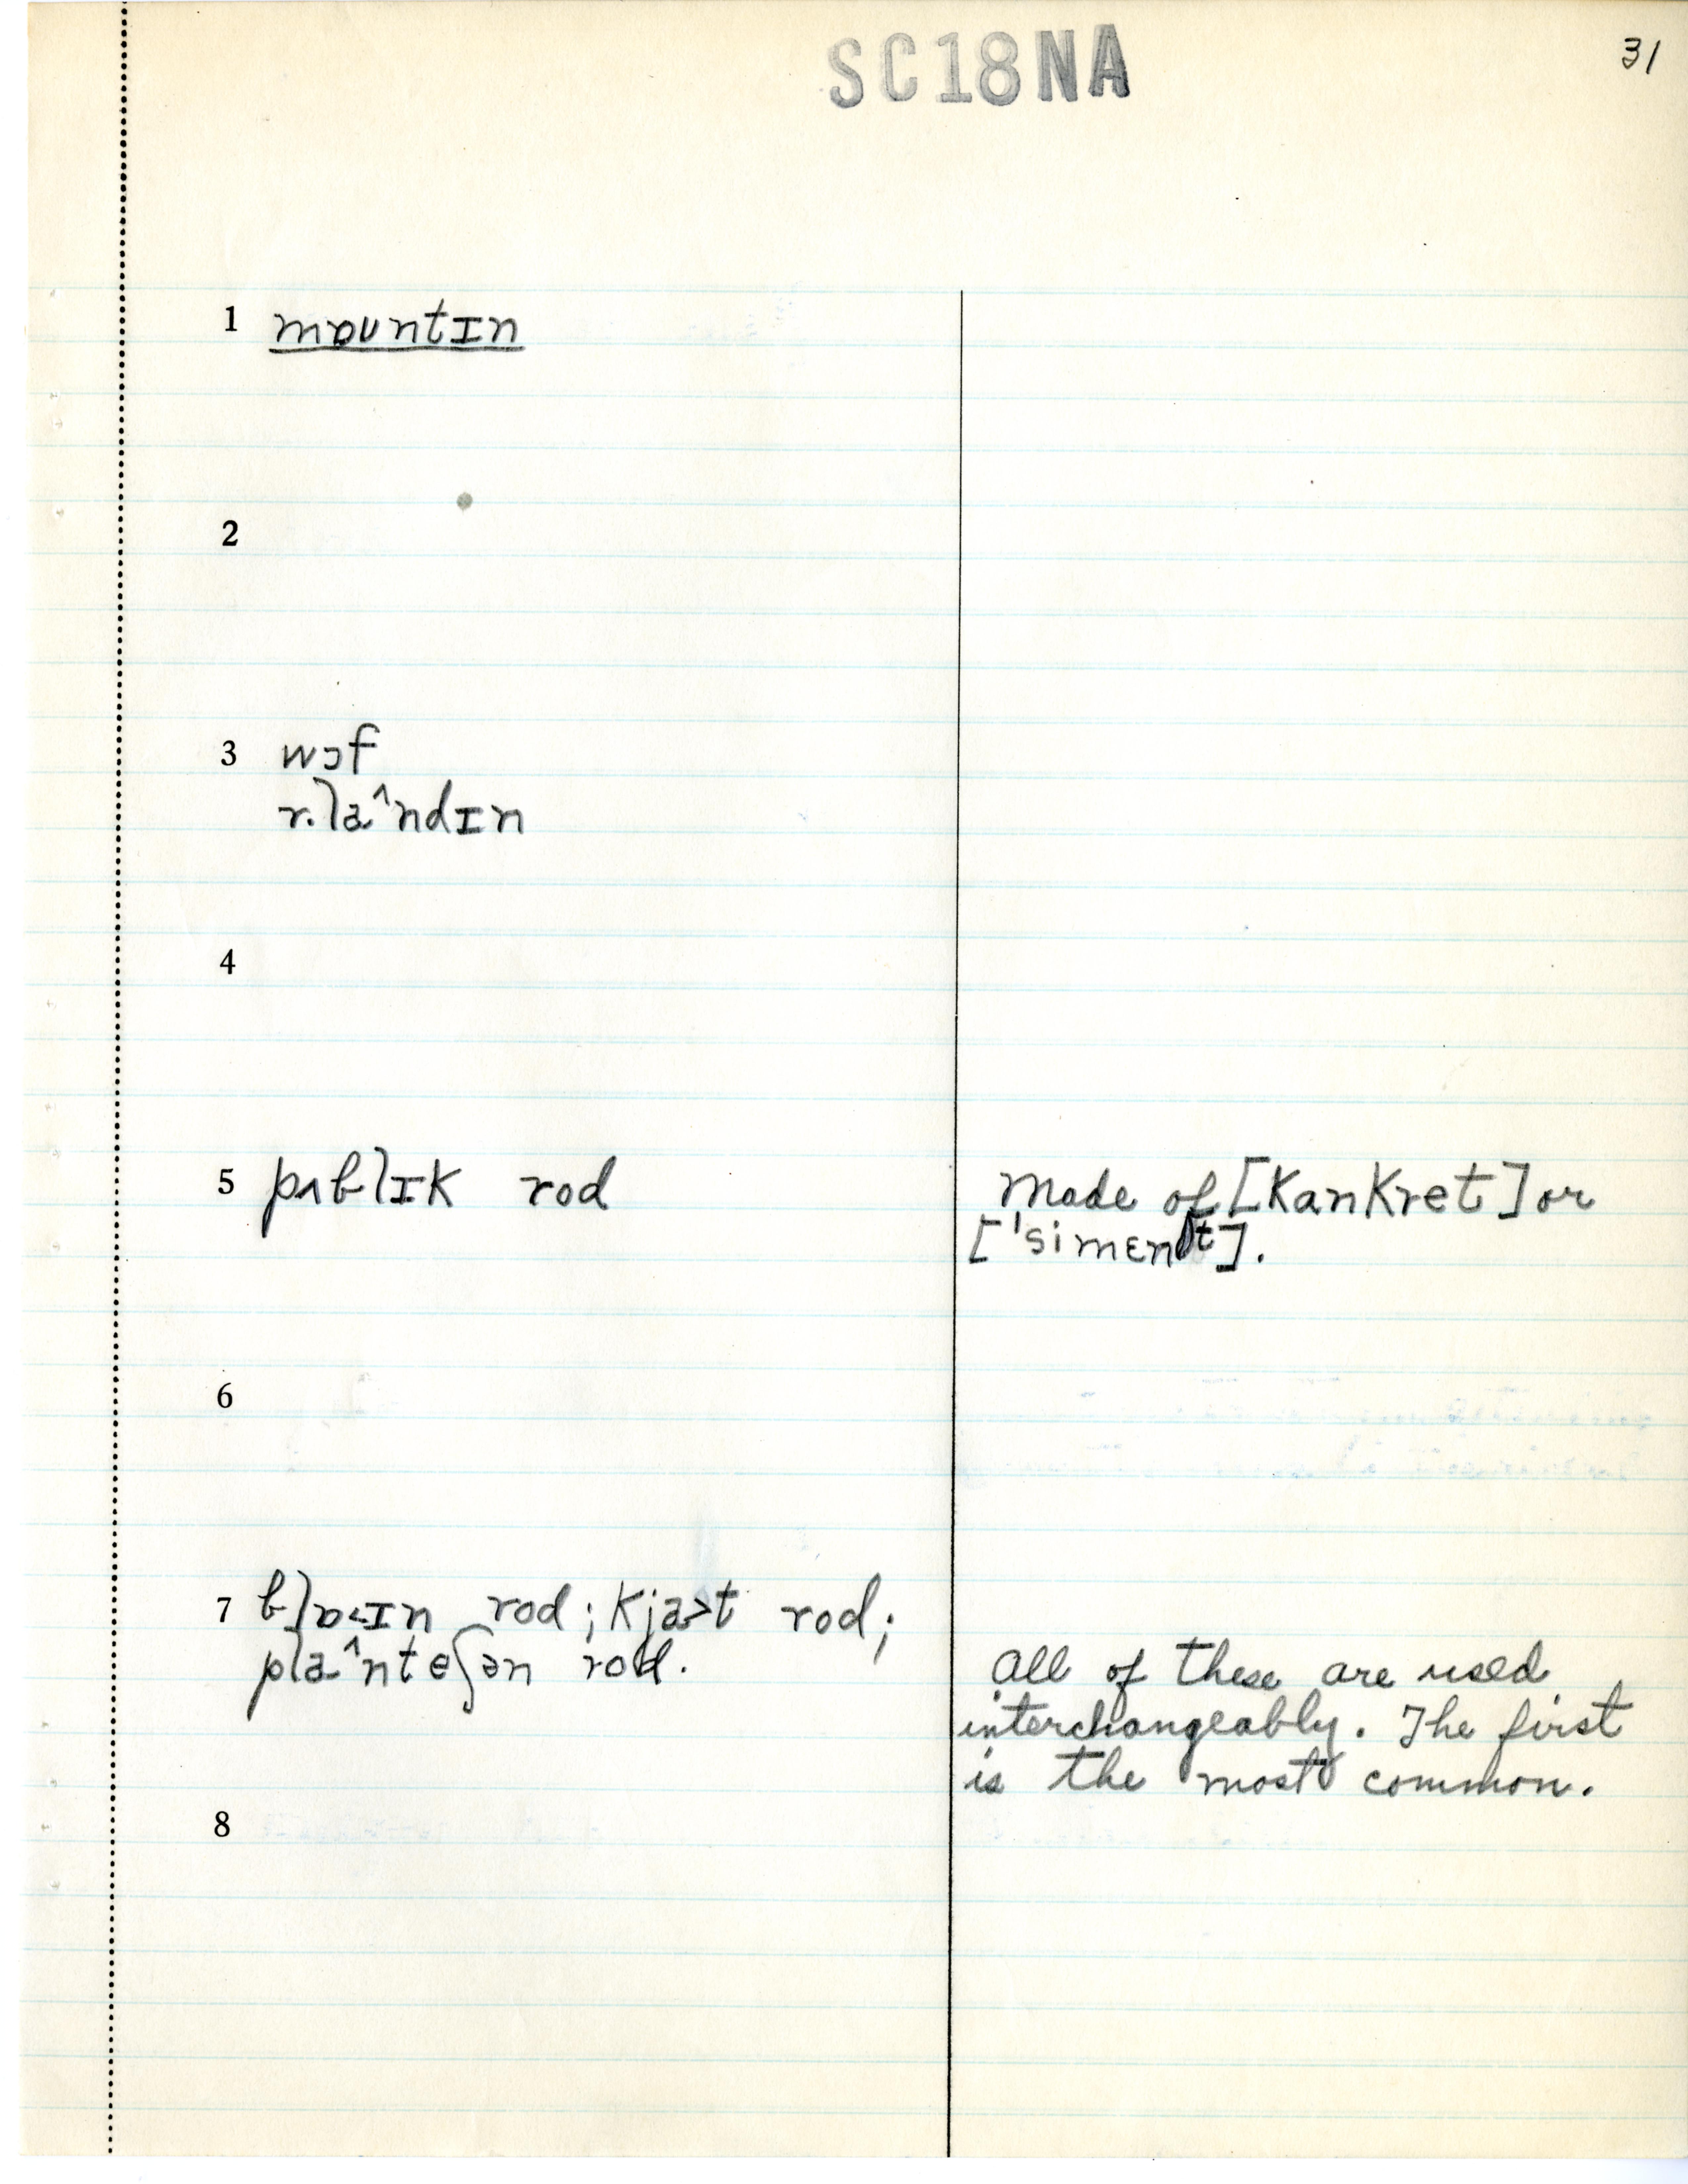 SC18NA
31
1 mɒuntɪn
2
3 wɔf
r.la^ndɪn
4
5 pʌblɪk rod
made of [kankret] or
['simɛnt].
6
7 blɒ<ɪn rod; kja>t rod;
pla^nteʃən rod.
all of these are used
interchangeably. The first
is the most common.
8